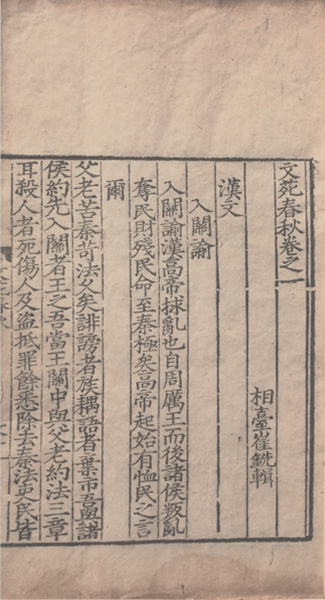 文苑春秋卷之一
相臺崔銑輯
漢文
入關諭
入關諭漢高帝救亂也自周厲王而後諸侯叛亂
奪民財殘民命至秦極矣高帝起始有恤民之言
爾
父老苦秦苛法乆矣誹謗者族耦語者棄市吾與諸
侯約先入關者王之吾當王關中與父老約法三章
耳殺人者死傷人及盜抵罪餘悉除去秦法吏民皆